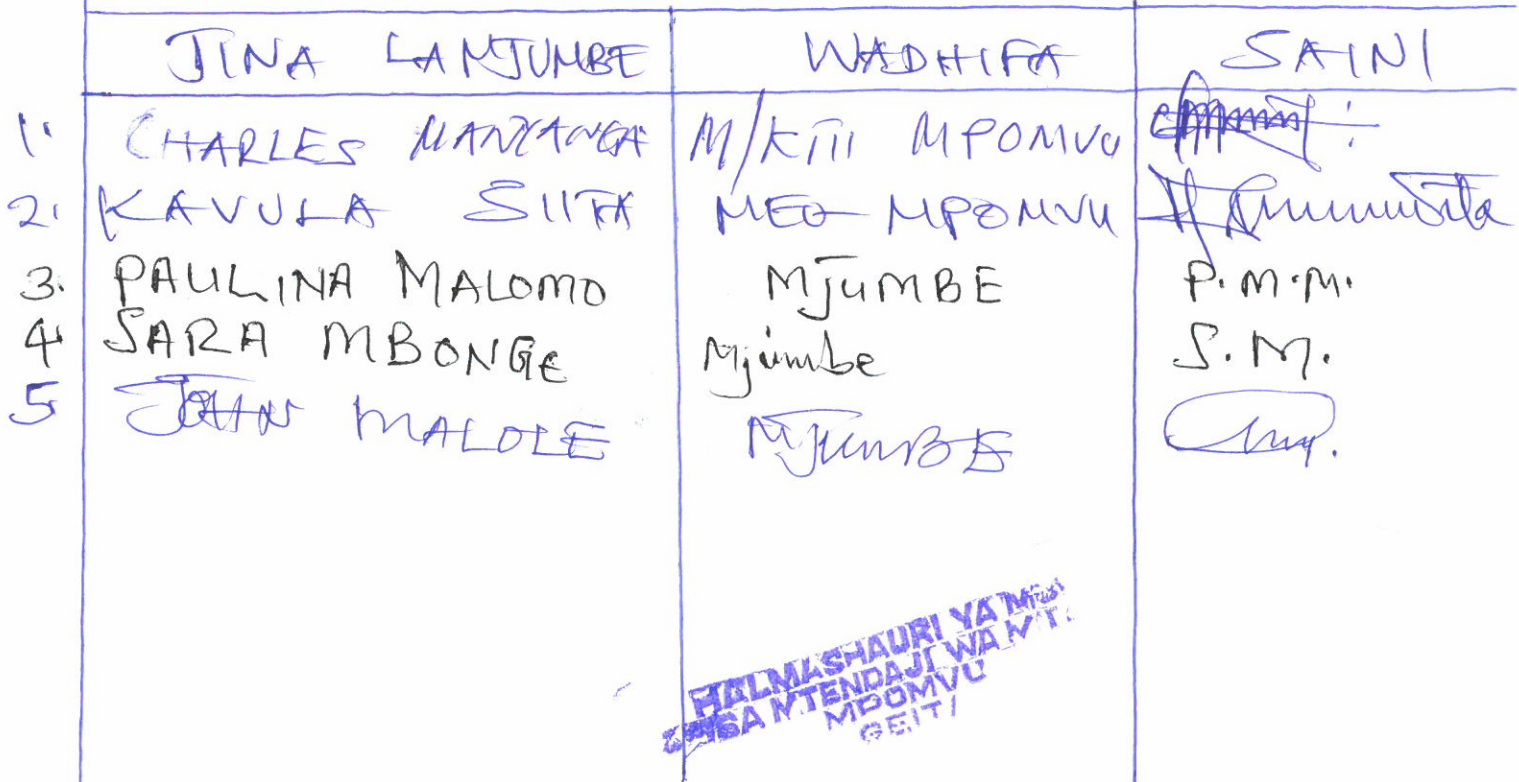 JINA LA MJUMBE WADHIFA SAINI
1. CHARLES MANYANGA M/KITI MPOMVU
2. KAVULA SIITA MEO MPOMVU
3. PAULINA MALOMO MJUMBE P.M.M.
4 SARA MBONGE Mjumbe S.M.
5 JOHN MALOLE MJUMBE
HALMASHAURI YA
MTENDAJI WA MT.
MPOMVU
GEITA